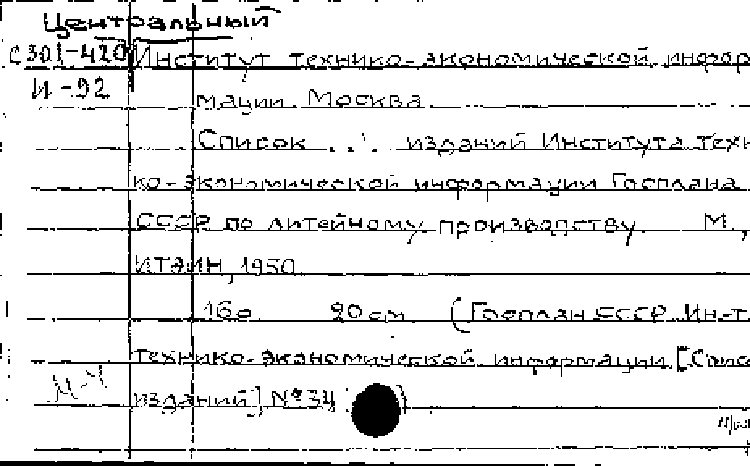 Центральный
С301-420 Институт технико-экономической инфор
И-92 мации. Москва
Список ... изданий Института техни
ко-экономической информации Госплана
СССР по литейному производству. М.,
ИТЭИН, 1950
16с 20 см (Госплан СССР. Ин-т
технико-экономической информации. [Списо
изданий], № 34)
М-4